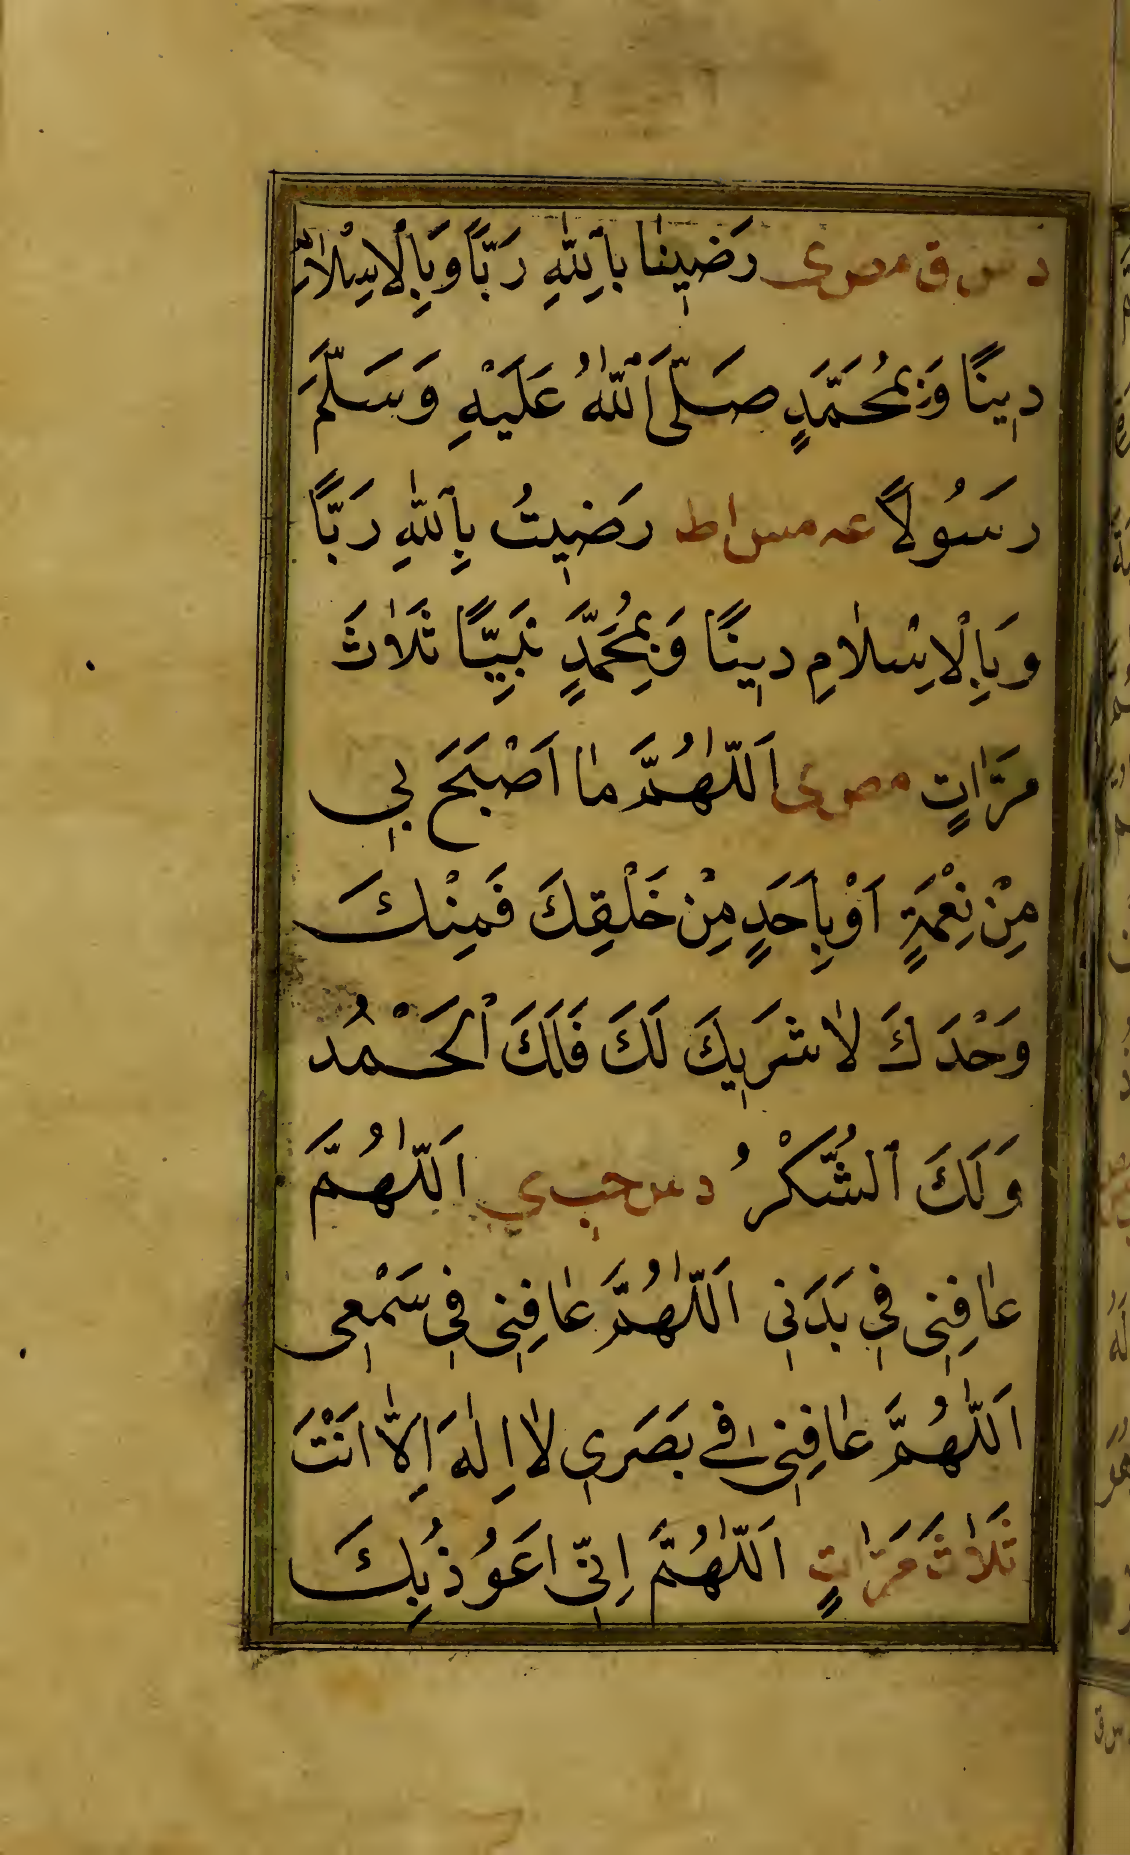 د س ق مص ى رَضِينَا بِاَللّٰهِ رَبًّا وَبِالْاِسْلَامِ
دِينًا وَبِمُحَمَّدٍ صَلَّى اَللّٰهُ عَلَيْهِ وَسَلَّمَ
رَسُولًا عه مس اط رَضِيتُ بِاَللّٰهِ رَبًّا
وَبِالْاِسْلَامِ دِينًا وَبِمُحَمَّدٍ نَبِيًّا ثَلَاثَ
مَرَّاتٍ مص ى اَللّٰهُمَّ مَا اَصْبَحَ بِي
مِنْ نِعْمَةٍ اَوْ بِاَحَدٍ مِنْ خَلْقِكَ فَمِنْكَ
وَحْدَكَ لَا شَرِيكَ لَكَ فَلَكَ الْحَمْدُ
وَلَكَ الشُّكْرُ د س حب ي اَللّٰهُمَّ
عَافِنِى فِي بَدَنِى اَللّٰهُمَّ عَافِنِى فِي سَمْعِى
اَللّٰهُمَّ عَافِنِى فِي بَصَرِي لَا اِلٰهَ اِلَّا اَنْتَ
ثَلَاثَ مَرَّاتٍ اَللّٰهُمَّ اِنِّى اَعُوذُ بِكَ